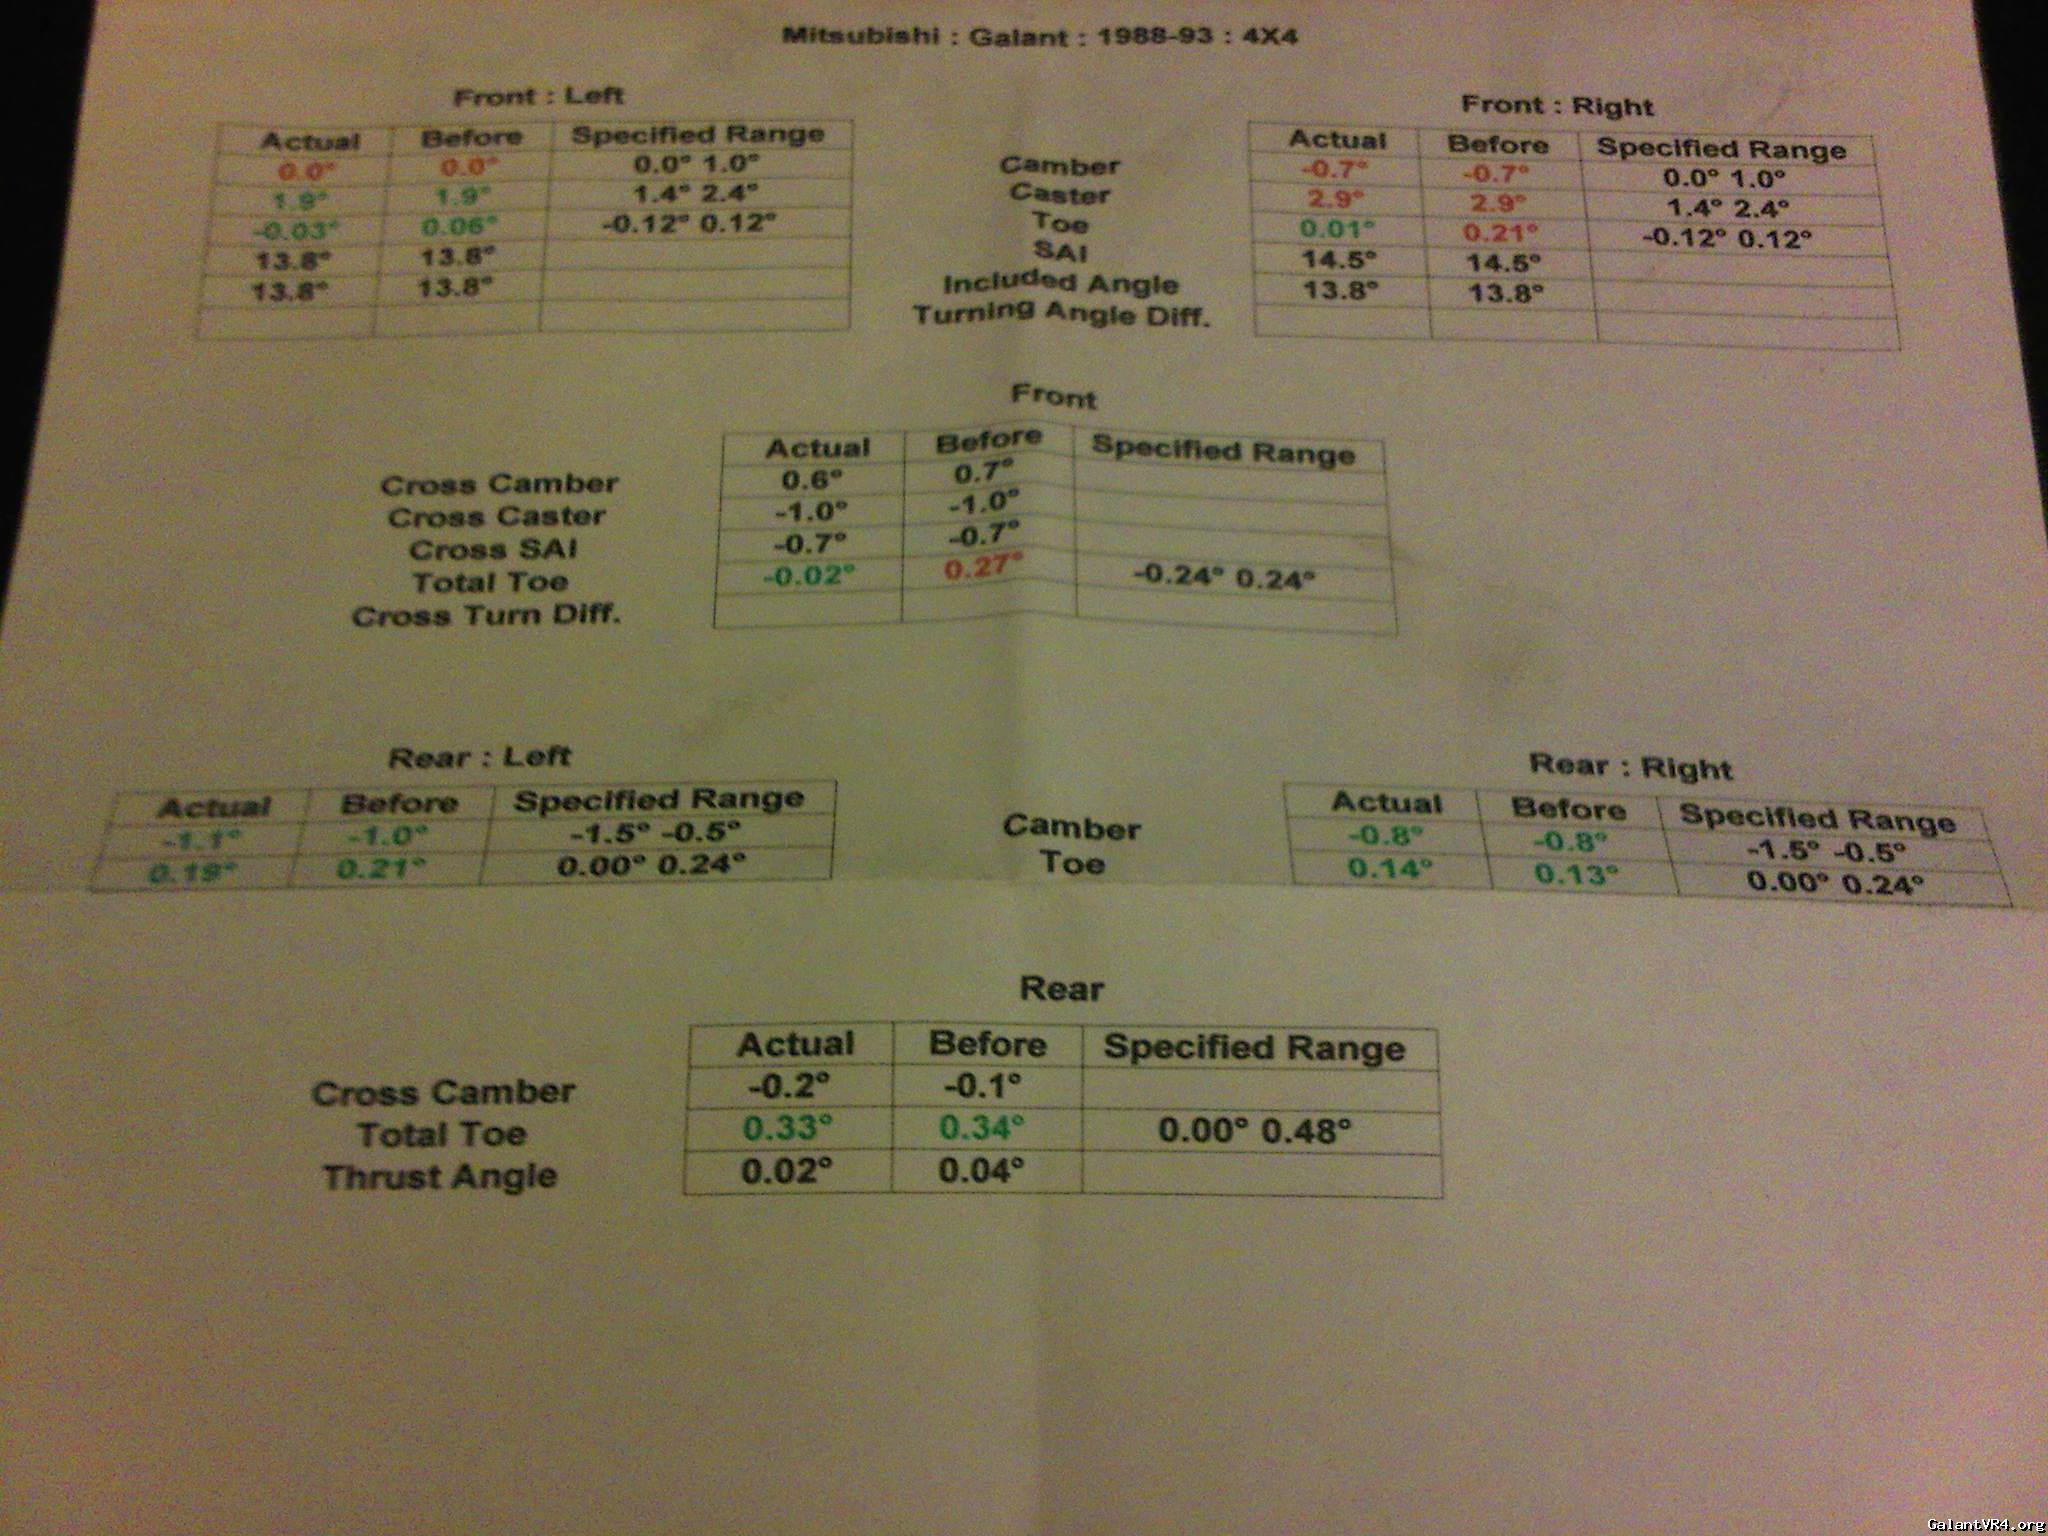 Mitsubishi : Galant : 1988-93 : 4X4
Front : Left
Actual Before Specified Range
0.0° 0.0° 0.0° 1.0°
1.9° 1.9° 1.4° 2.4°
-0.03° 0.06° -0.12° 0.12°
13.8° 13.8°
13.8° 13.8°
Camber
Caster
Toe
SAI
Included Angle
Turning Angle Diff.
Front : Right
Actual Before Specified Range
-0.7° -0.7° 0.0° 1.0°
2.9° 2.9° 1.4° 2.4°
0.01° 0.21° -0.12° 0.12°
14.5° 14.5°
13.8° 13.8°
Front
Actual Before Specified Range
Cross Camber 0.6° 0.7°
Cross Caster -1.0° -1.0°
Cross SAI -0.7° -0.7°
Total Toe -0.02° 0.27° -0.24° 0.24°
Cross Turn Diff.
Rear : Left
Actual Before Specified Range
-1.1° -1.0° -1.5° -0.5°
0.19° 0.21° 0.00° 0.24°
Camber
Toe
Rear : Right
Actual Before Specified Range
-0.8° -0.8° -1.5° -0.5°
0.14° 0.13° 0.00° 0.24°
Rear
Actual Before Specified Range
Cross Camber -0.2° -0.1°
Total Toe 0.33° 0.34° 0.00° 0.48°
Thrust Angle 0.02° 0.04°
GalantVR4.org